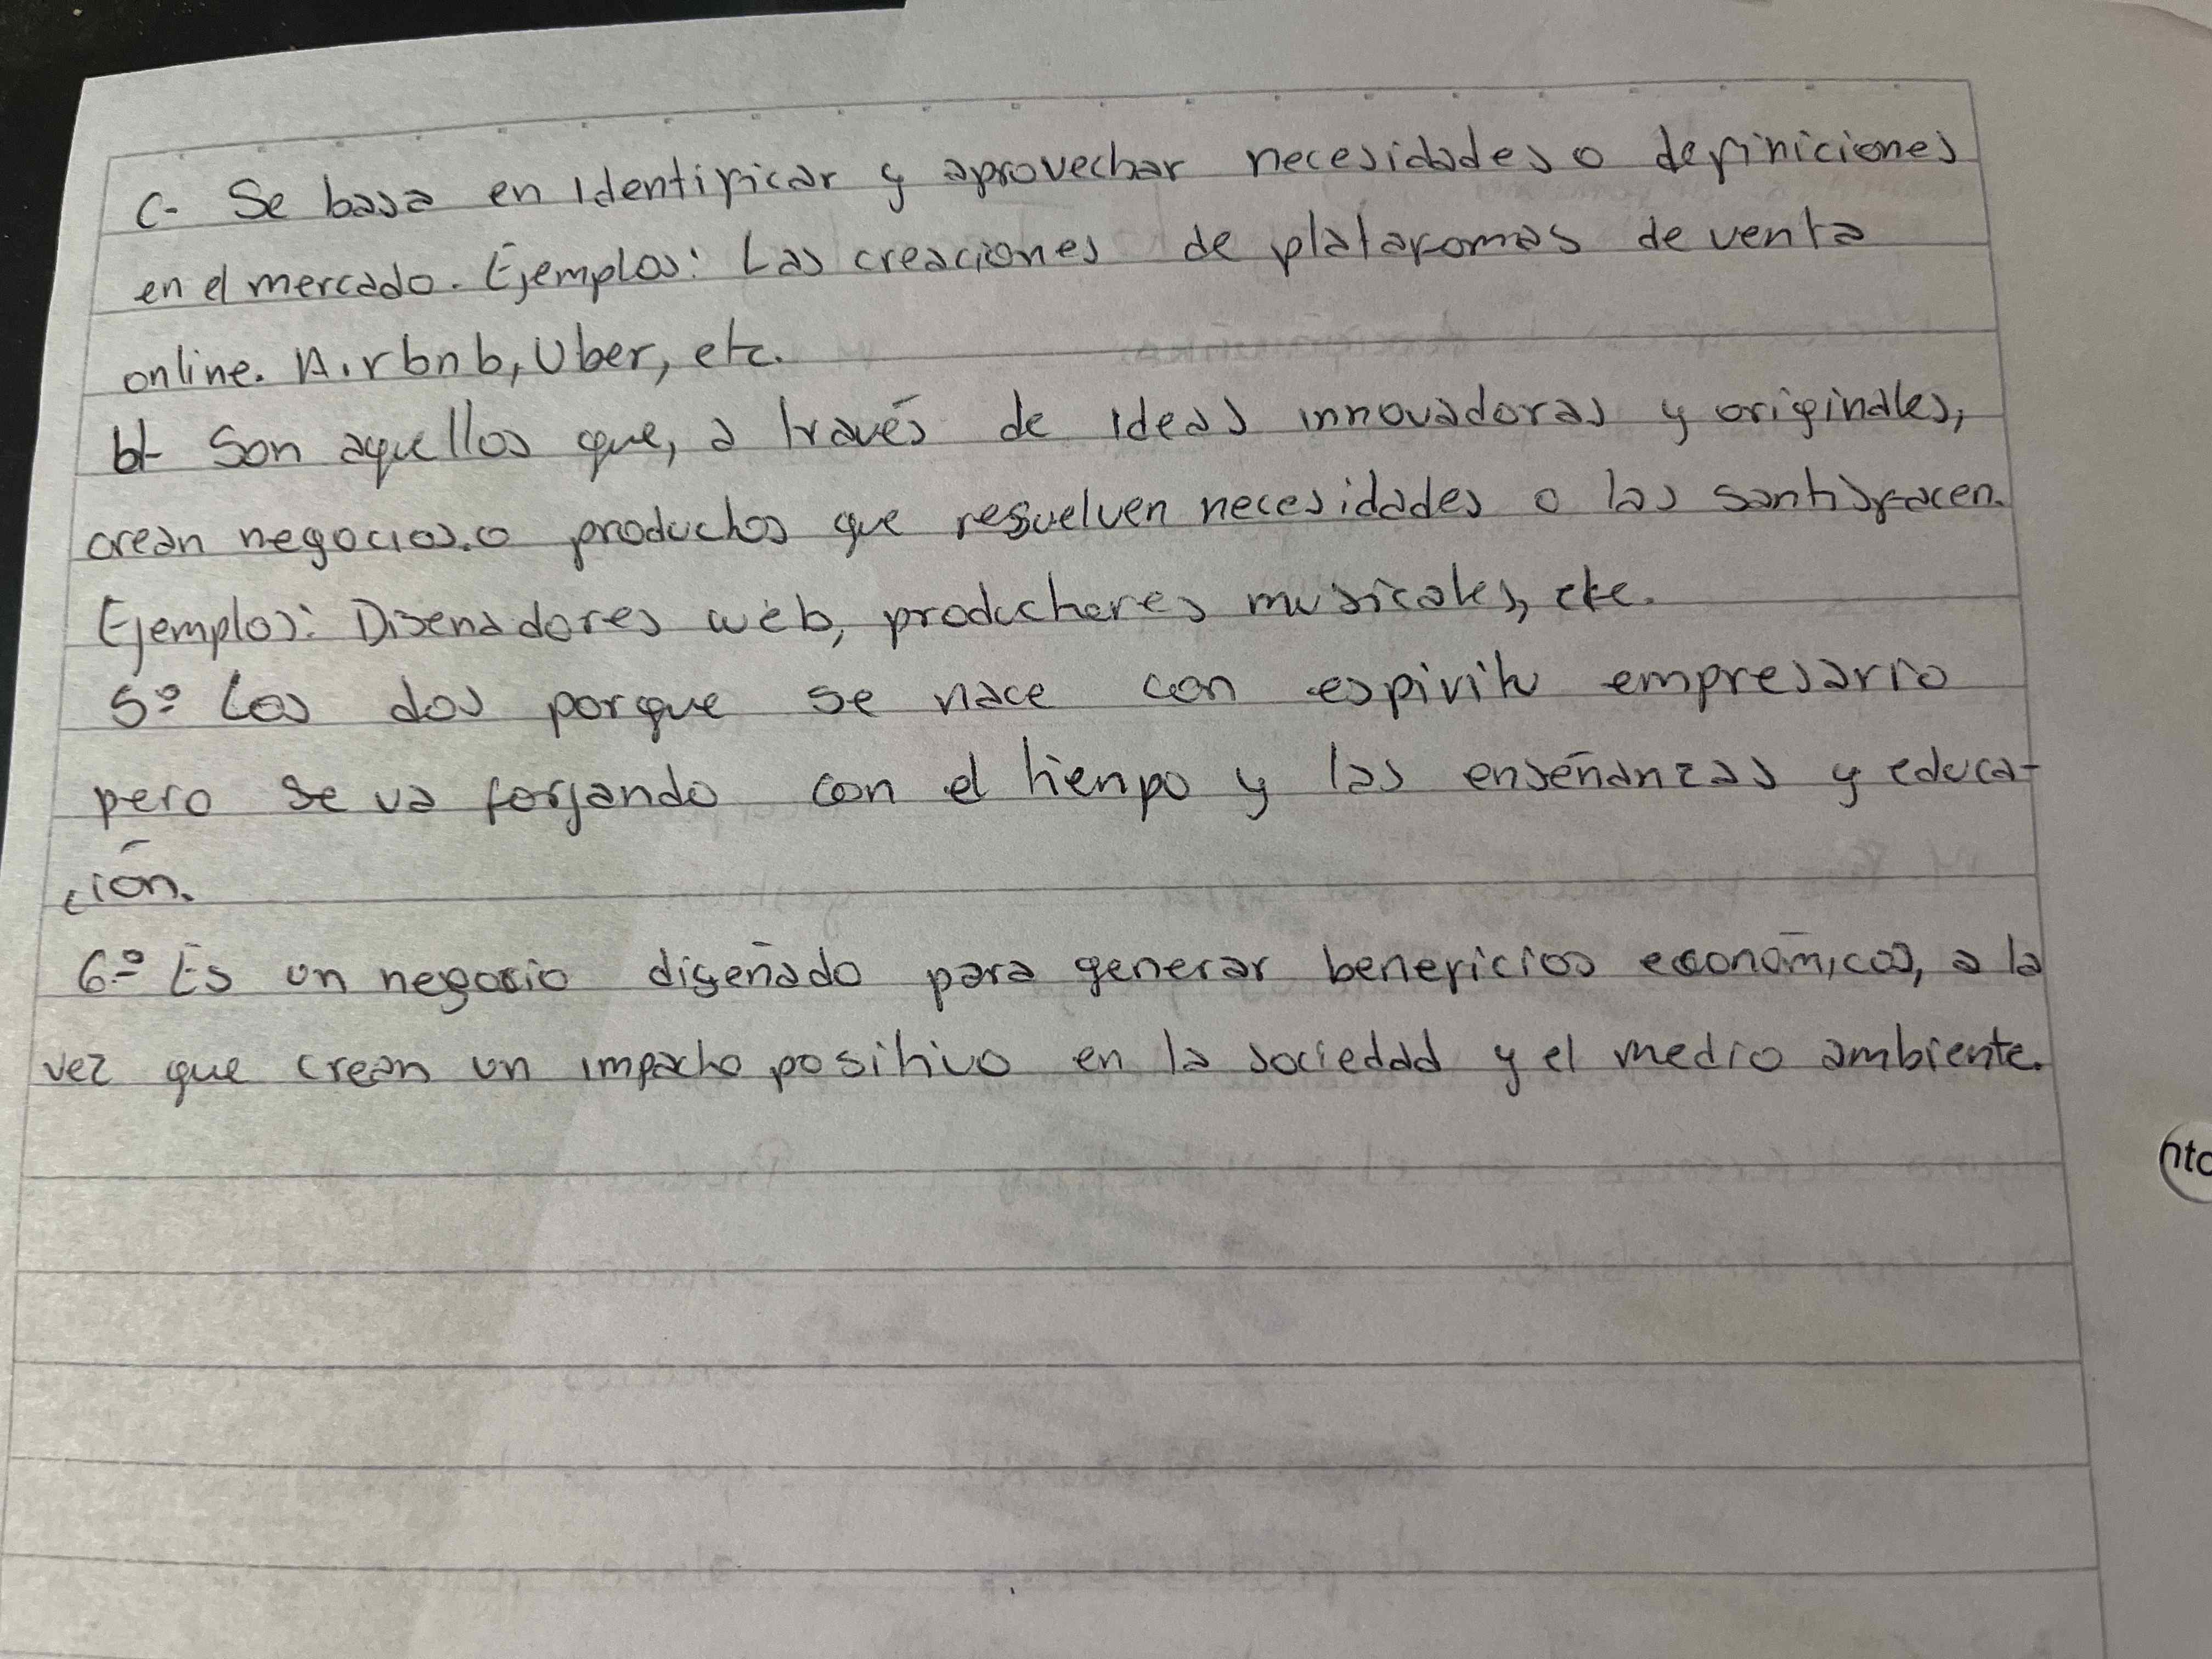 c- Se basa en identificar y aprovechar necesidades o definiciones
en el mercado. Ejemplos: Las creaciones de plataformas de venta
online. Airbnb, Uber, etc.
b- Son aquellos que, a través de ideas innovadoras y originales,
crean negocios o productos que resuelven necesidades o las santisfacen.
Ejemplos: Diseñadores web, productores musicales, etc.
5º Los dos porque se nace con espiritu empresario
pero se va forjando con el tienpo y las enseñanzas y educa-
ción.
6º Es un negocio diseñado para generar beneficios económicos, a la
vez que crean un impacto positivo en la sociedad y el medio ambiente.